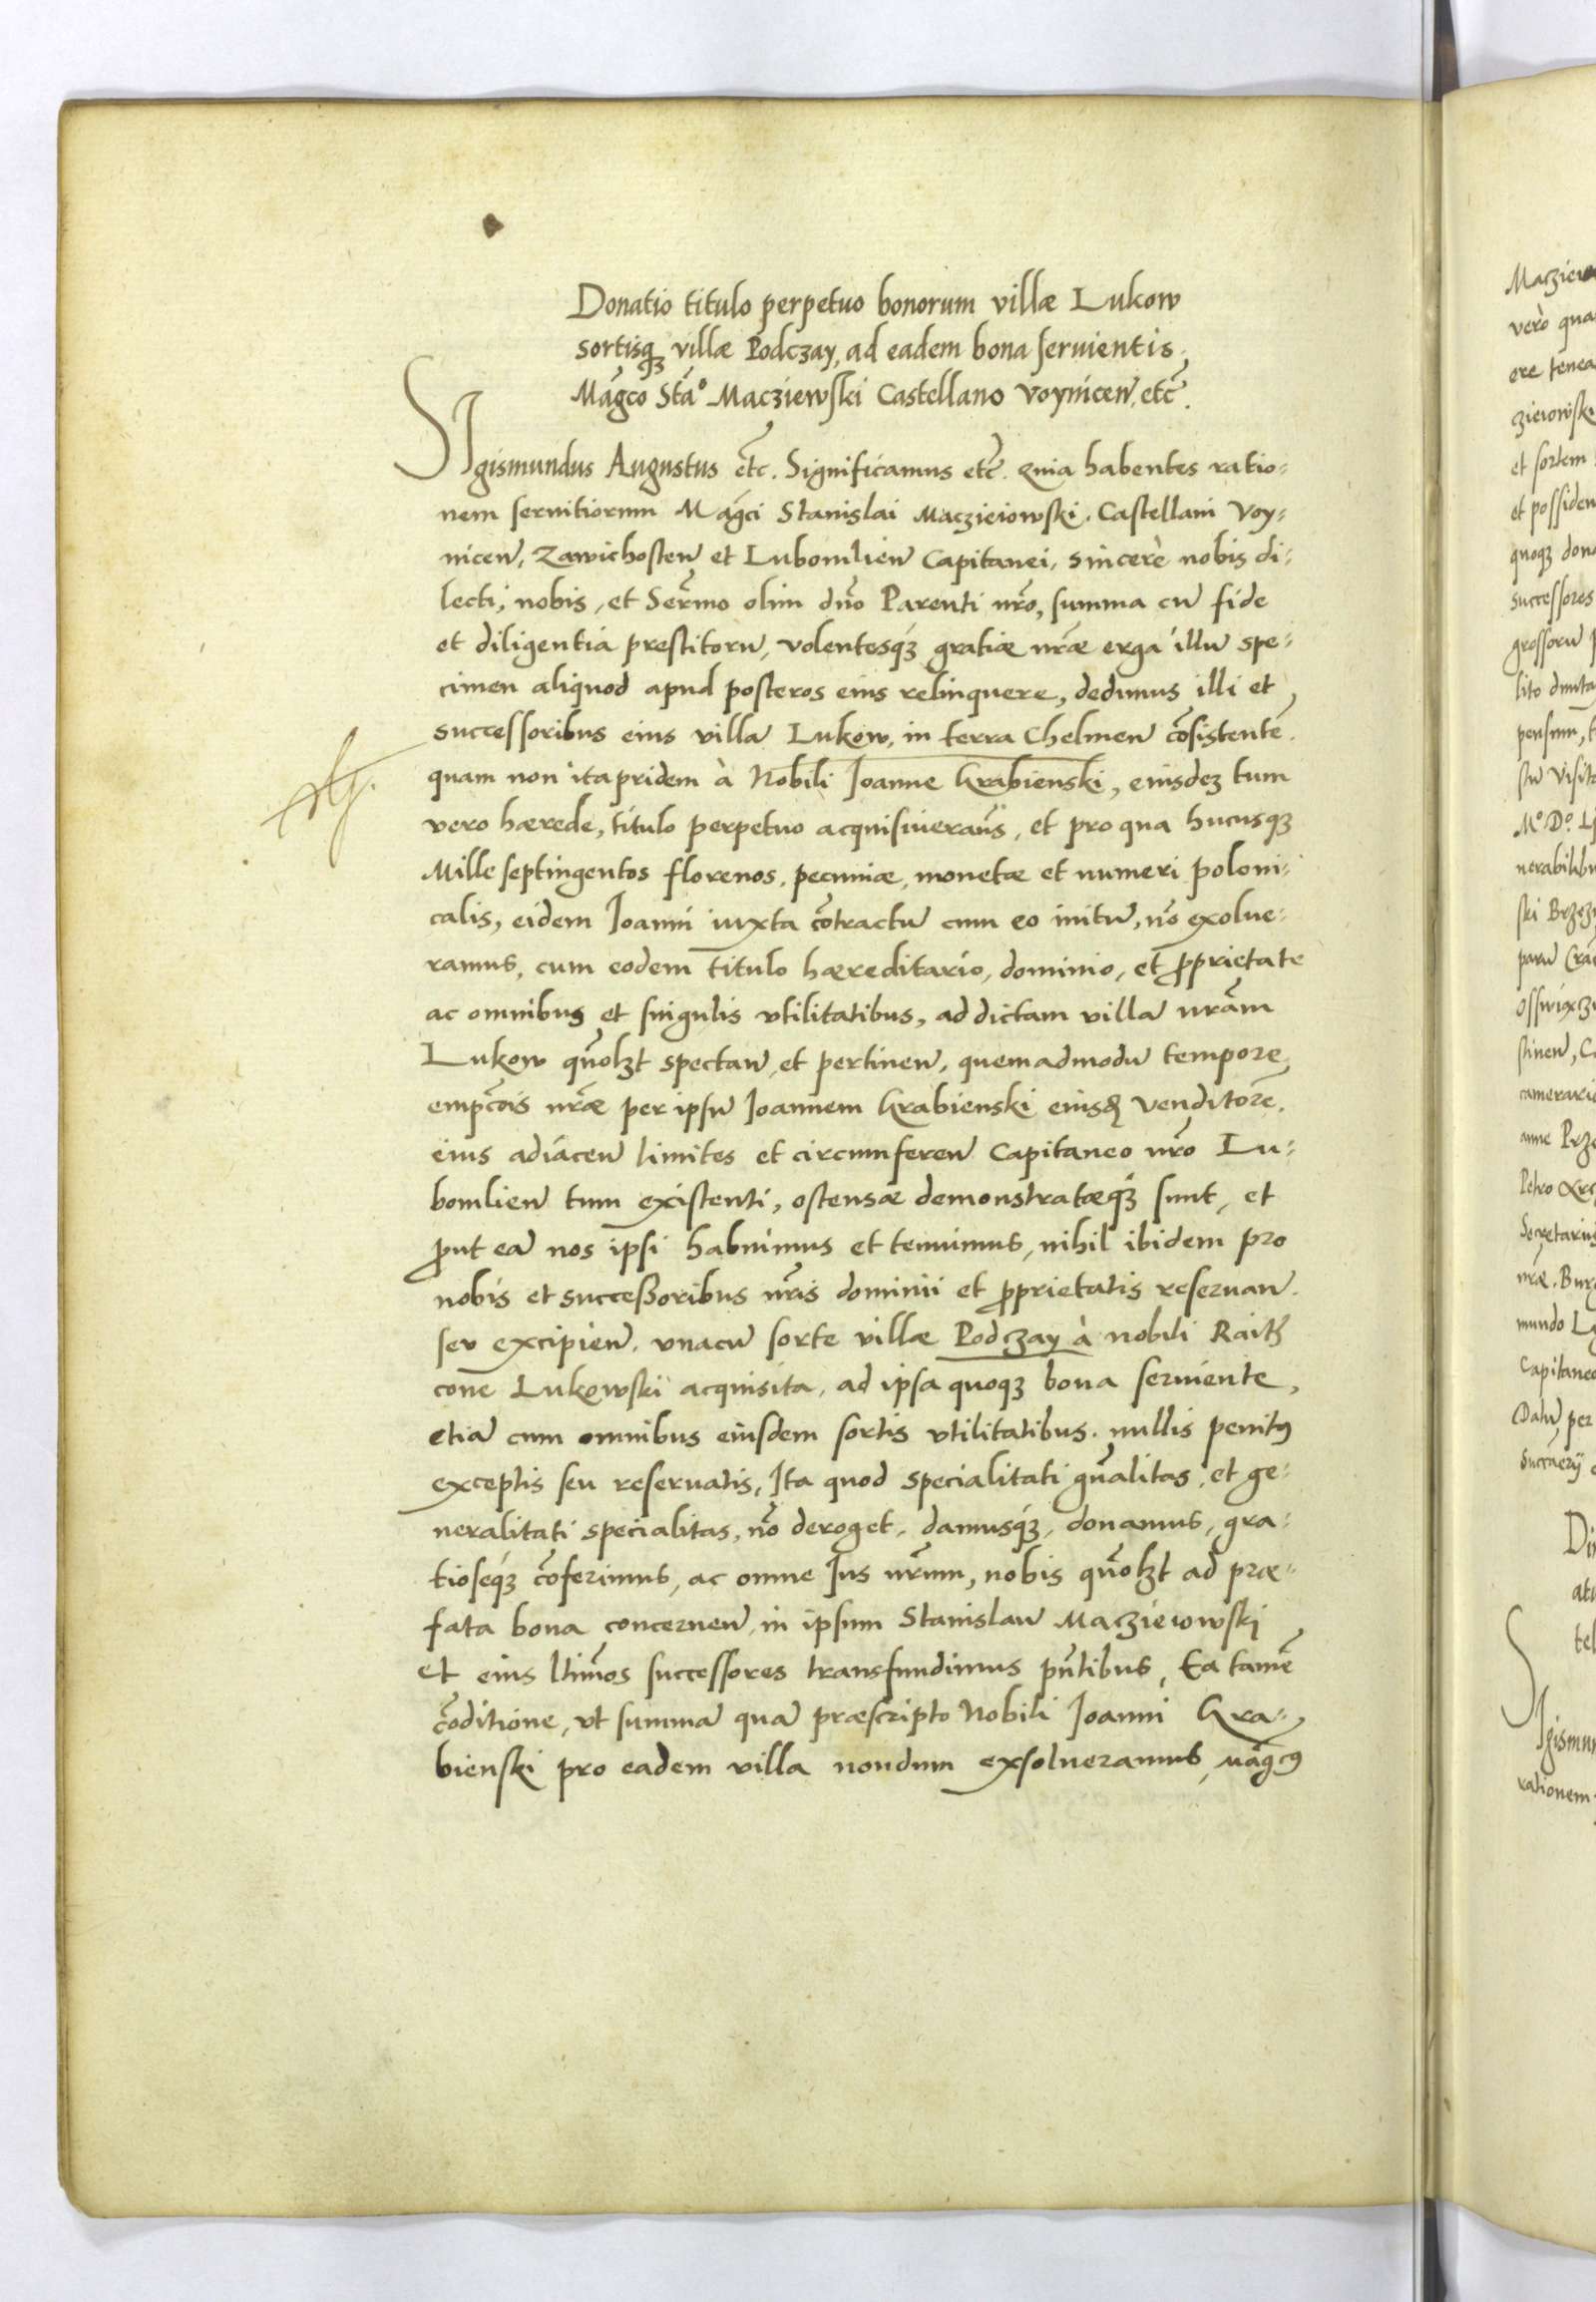 Donatio titulo perpetuo bonorum villæ Lukow
sortisqꝫ villæ Podczay, ad eadem bona seruientis
Mag̃co Stã° Macziewski Castellano Voyniceñ, etc̃.
SIgismundus Augustus etc̃. Significamus etc̃. Quia habentes ratio:
nem seruitiorum Mag̃ci Stanislai Maczieiowski. Castellani Voy:
niceñ, Zawichosteñ et Lubomlieñ Capitanei, sincerè nobis di:
lecti, nobis, et Ser̃mo olim dño Parenti nr̃o, summa cũ fide
et diligentia prestitorũ, volentesqꝫ gratiæ nr̃æ erga illũ spe:
cimen aliquod apud posteros eius relinquere, dedimus illi et
successoribus eius villã Lukow, in terra Chelmeñ cõsistentẽ.
quam non ita pridem à Nobili Ioanne Krabienski, eiusdeꝫ tum
vero hærede, titulo perpetuo acquisiueram͂s, et pro qua hucusqꝫ
Mille septingentos florenos, pecuniæ, monetæ et numeri poloni:
calis, eidem Ioanni iuxta cõtractũ cum eo initũ, nõ exolue:
ramus, cum eodem titulo hæreditario, dominio, et ꝓprietate
ac omnibus et singulis vtilitatibus, ad dictam villã nr̃am
Lukow quõlꝫt spectañ et pertineñ, quemadmodũ tempore
empc̃ois nr̃æ per ipsũ Ioannem Krabienski eiusꝗ venditorẽ,
eius adiaceñ limites et circumfereñ Capitaneo nr̃o Lu:
bomlieñ tum existenti, ostensæ demonstratæqꝫ sunt, et
ꝓut eã nos ipsi habuimus et tenuimus, nihil ibidem pro
nobis et successoribus nr̃is dominii et ꝓprietatis reseruañ
seu excipieñ. vnacũ sorte villæ Podczay à nobili Raitꝫ
cone Lukowski acquisita, ad ipsa quoqꝫ bona seruiente,
etiã cum omnibus eiusdem sortis vtilitatibus. nullis penitꝰ
exceptis seu reseruatis, Ita quod specialitati gñalitas, et ge:
neralitati specialitas, nõ deroget, damusqꝫ, donamus, gra:
tioseqꝫ cõferimus, ac omne Ius nr̃um, nobis quõlꝫt ad præ:
fata bona concerneñ, in ipsum Stanislaũ Maczieiowski
et eius ltimõs successores transfundimus pñtibus, Ea tamẽ
cõditione, vt summã quã præscripto Nobili Ioanni Kra:
bienski pro eadem villa nondum exsolueramus, mag̃cꝰ